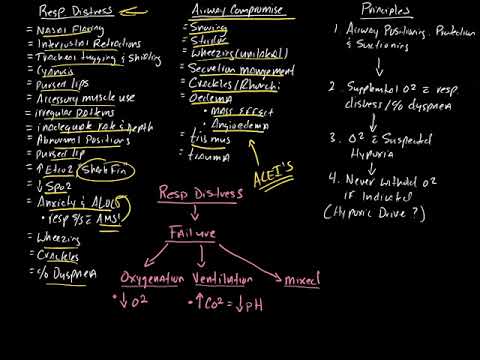 Resp. Distress
= Nasal Flaring
= Intercostal Retractions
= Tracheal tugging & Shielding
= Cyanosis
= Pursed lips
= Accessory muscle use
= irregular patterns
= inadequate rate & depth
= Abnormal Positions
= Pursed lip
= ↑ Etco2 (Shark Fin)
= ↓ SpO2
= Anxiety & ALOC
• resp s/s = AMS!
= Wheezing
= Crackles
= c/o Dyspnea
Airway Compromise
= Snoring
= Stridor
= Wheezing (unilateral)
= Secretion management
= Crackles/Rhonchi
= Oedema
• Mass Effect
• Angioedema
= trismus
= trauma
ACEI's
Resp Distress
Failure
Oxygenation Ventilation mixed
• ↓ O2 • ↑ CO2 = ↓ pH
Principles
1. Airway Positioning, Protection
& Suctioning
2. Supplemental O2 c̄ resp.
distress / c/o dyspnea
3. O2 c̄ Suspected
Hypoxia
4. Never withhold O2
if Indicated
(Hypoxic Drive?)